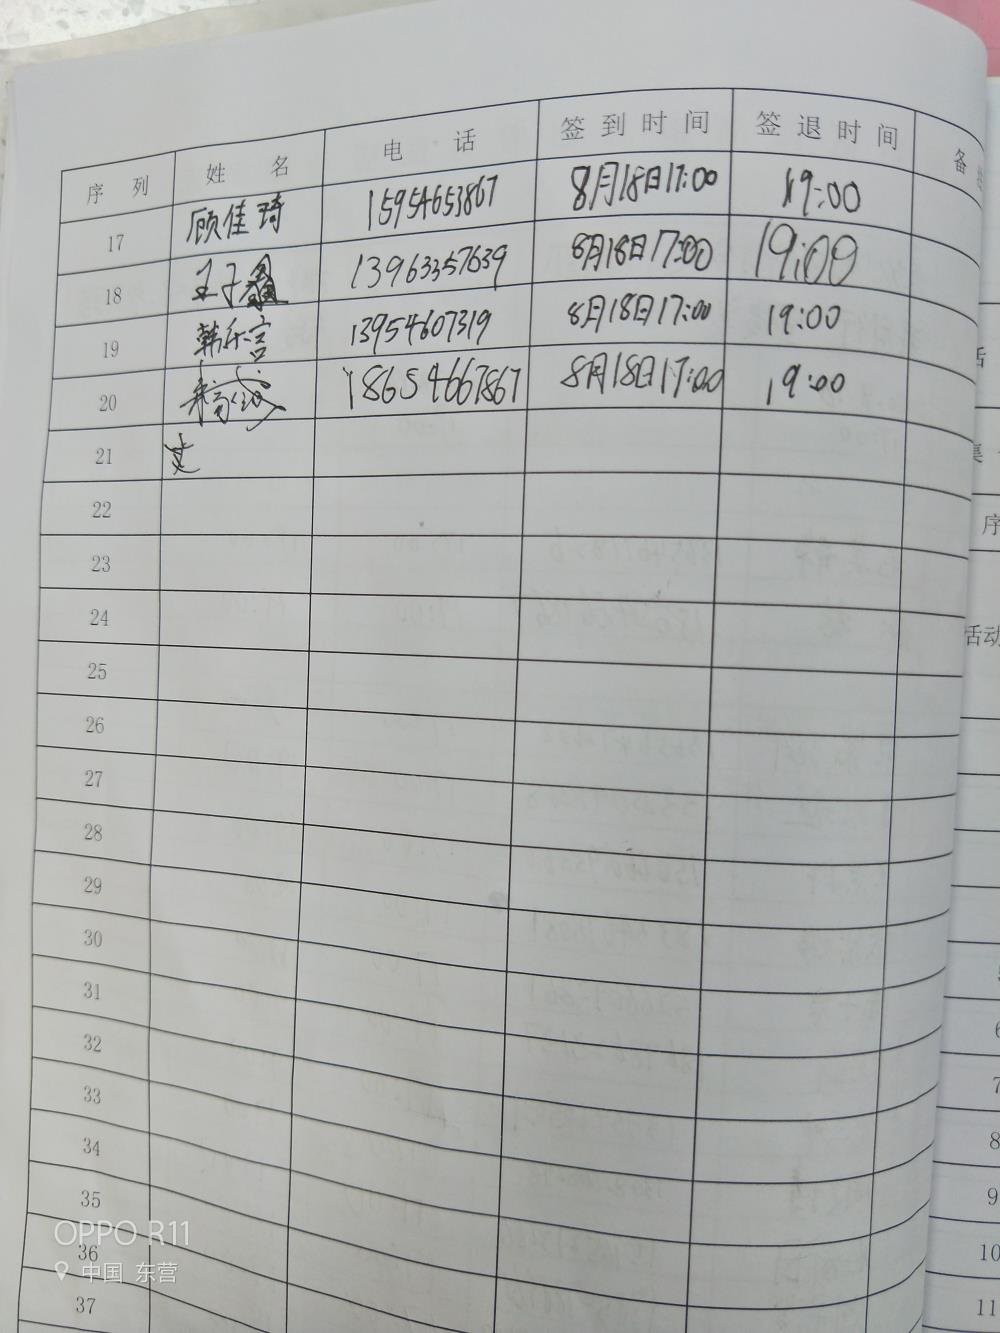 序 列 姓 名 电 话 签到时间 签退时间 备
17 顾佳琦 15954653867 8月18日17:00 19:00
18 王子鑫 13963357639 8月18日17:00 19:00
19 韩乐言 13954607319 8月18日17:00 19:00
20 18654667867 8月18日17:00 19:00
21
22
23
24
25
26
27
28
29
30
31
32
33
34
35
36
37
活
集
序
活动
6
7
8
9
10
11
OPPO R11
中国 东营